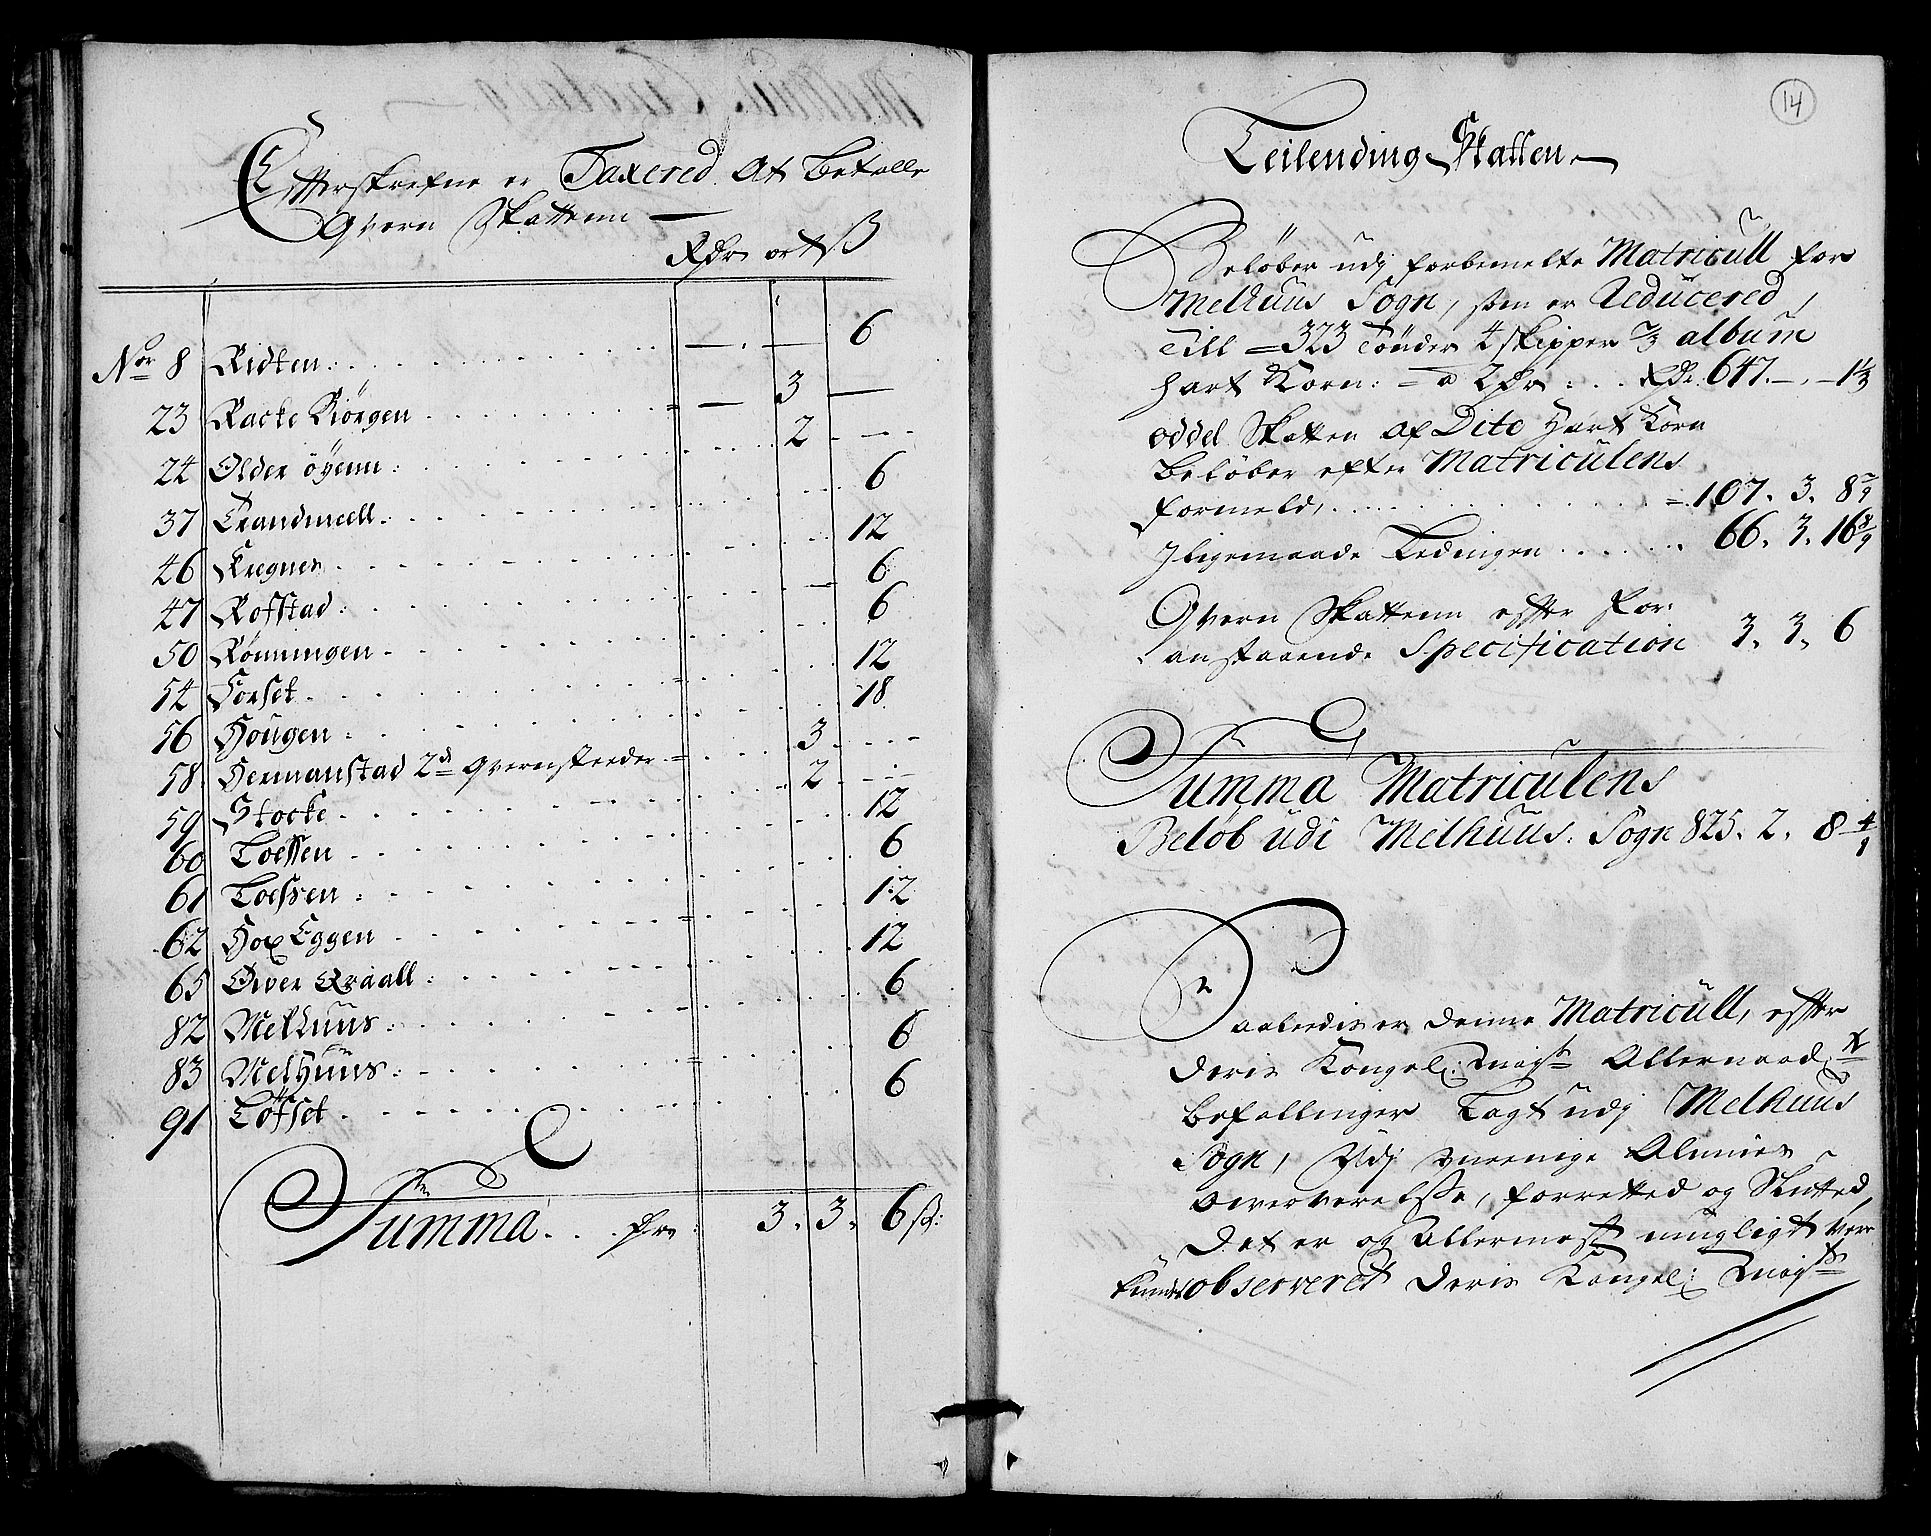 Efterskrefne er Taxered At betalle
Qvern Skattenn —
Rdr ort ß
Nor 8 Ridten . . . — . — 6
23 Backe Kiörgen . . . — 3 —
24 Older öyenn . . . 2 . —
37 Trandmeell . . . 6
46 Kregnes . . . 12
47 Rofstad . . . — 6
50 Rönningen . . . 6
54 Forset . . . 12
56 Hougen . . . 18
58 Hermanstad 2de qvernsteeder . . . 3 . —
59 Stocke . . . 2 . —
60 Loessen . . . 12
61 Loessen . . . 6
62 Hox Eggen . . . 12
65 Öwer Qvaall . . . 12
82 Melhuus . . . 6
83 Melhuus . . . 6
91 Löfset . . . 6
Summa . . . pr : 3. 3. 6 ß:
14
Leilending Skatten
Belöber udj forbemelte Matricull for
Melhuus Sogn, som er Reducered,
Till = 323 Tönder 4 skipper 2/3 album
hart Korn: = a 2 dr . . . Rdr. 647. — . — 1 1/3
oddel Skatten af Dito Hart Korn
belöber efter Matriculens
formeld, . . . = 107. 3. 8 7/9
Jligemaade Ledingen . . . 66. 3. 16 8/9
Qvern Skattenn effter for:
anstaaende Specification 3. 3. 6
Summa Matriculens
Belöb udi Melhuus: Sogn 825. 2. 8 4/9
Saaledis er denne Matricull, effter
Deris Kongel: Mayts Allernaad:
befallinger Lagt udj Melhuus
Sogn, Udj meenige Almues
owerverelsse, forretted og Slutted,
Det er og Allermest mugligt ver
kundes observeret Deris Kongel: Mayts